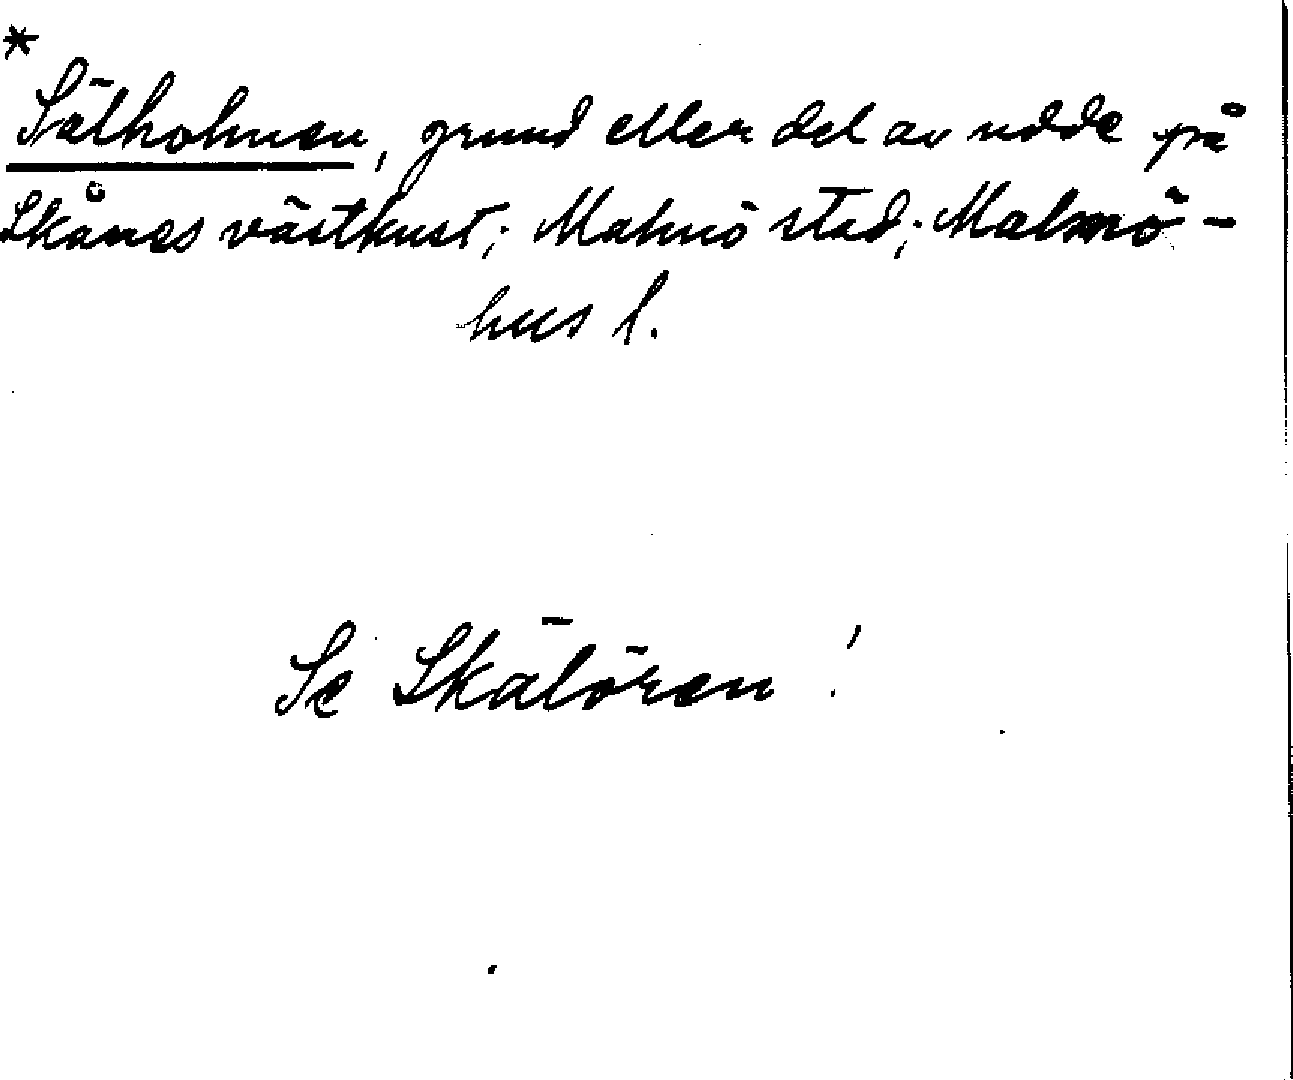 *
Sälholmen, grund eller del av udde på
Skånes västkust; Malmö stad; Malmö-
hus l.
Se Skälören!